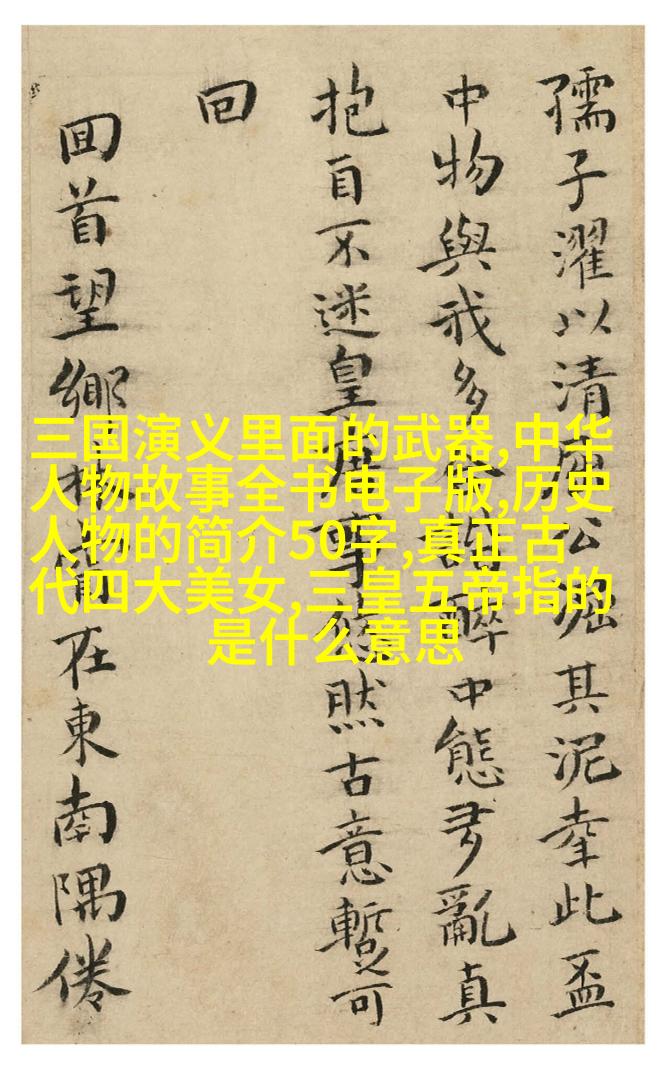 三国演义里面的武器,中华
人物故事全书电子版,历史
人物的简介50字,真正古
代四大美女,三皇五帝指的
是什么意思
孺子濯以清屈公堀其泥幸此盃
中物與我多醉中態多亂真
抱自不迷皇然古意暫可
回
回首望鄉在東南隅倦